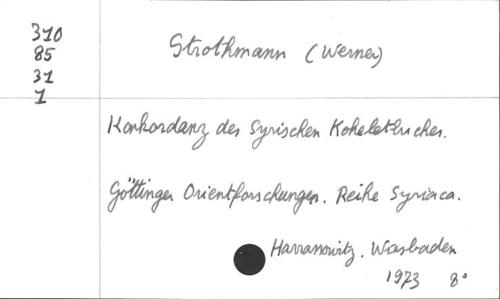 310
85
31
1
Strothmann (Werner)
Konkordanz des Syrischen Koheletbuches.
Göttinger Orientforschungen. Reihe Syriaca.
Harrassowitz. Wiesbaden
1973 8°